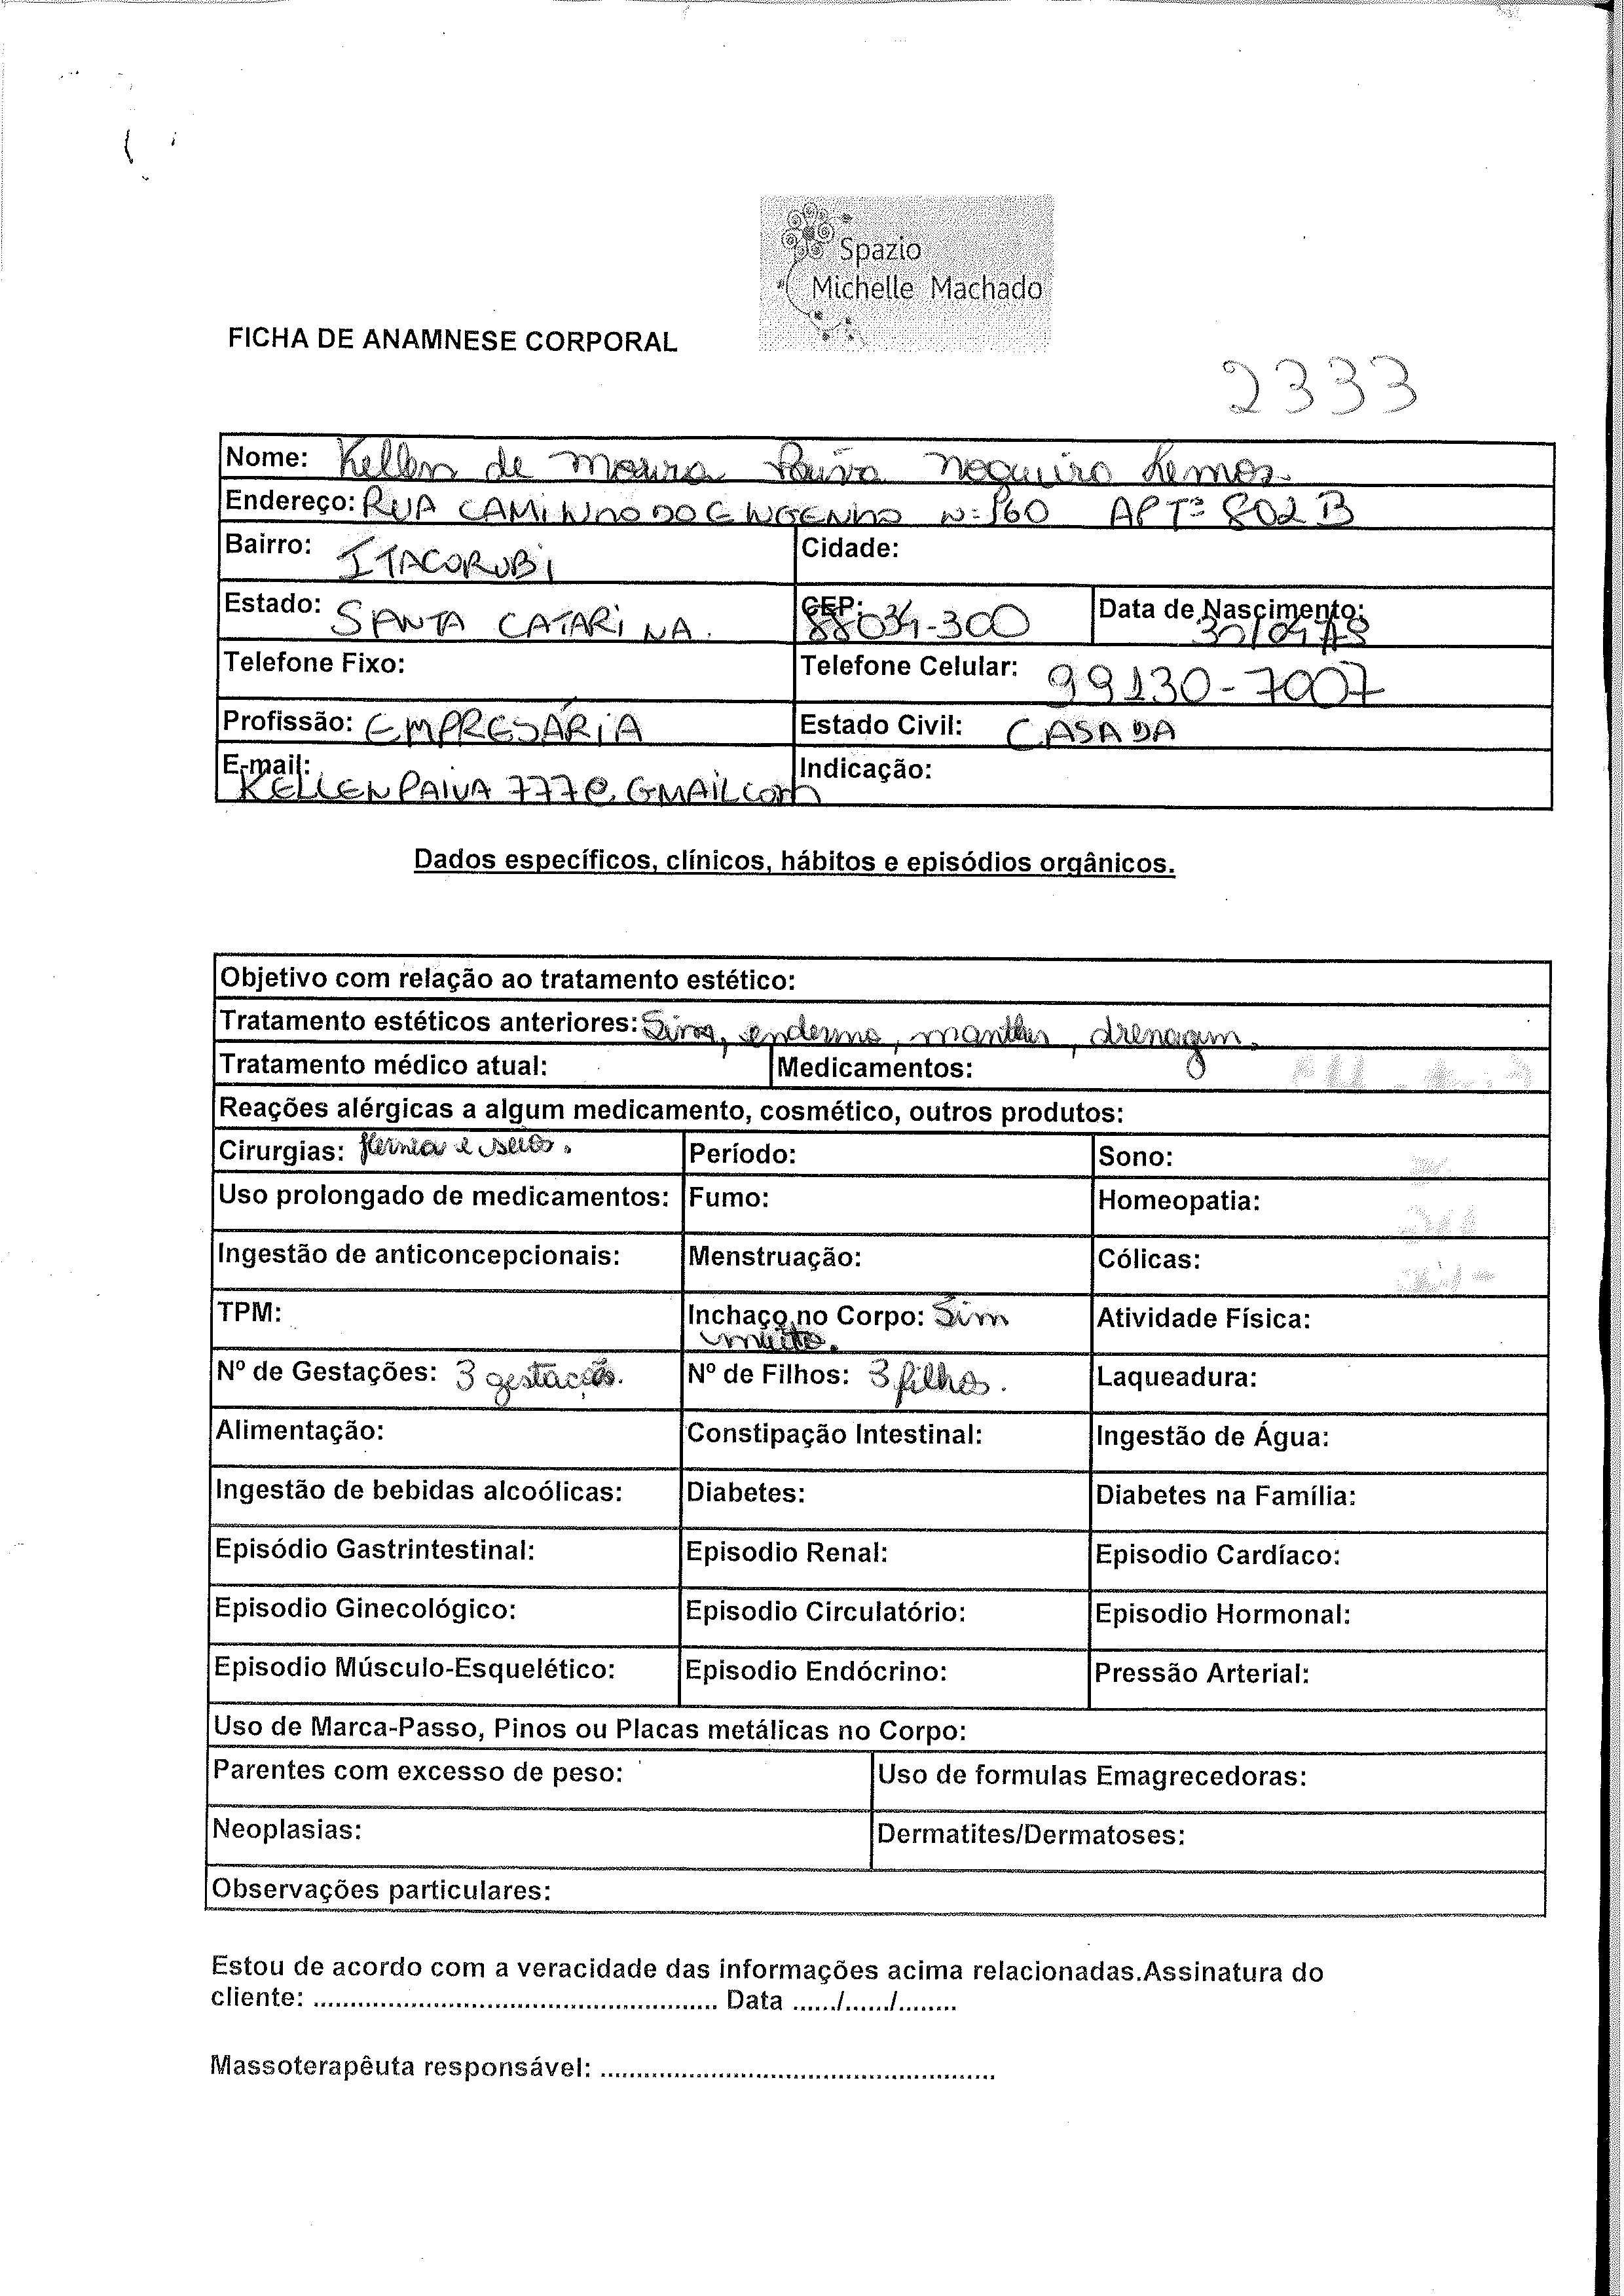 Spazio
Michelle Machado
FICHA DE ANAMNESE CORPORAL
2333
Nome: Kellen de Moura Paiva Nogueira Lemos
Endereço: RUA CAMINHO DO ENGENHO Nº 160 APTº 802 B
Bairro: ITACORUBI Cidade:
Estado: SANTA CATARINA. CEP: 88034-300 Data de Nascimento:
Telefone Fixo: Telefone Celular: 99130-7007
Profissão: EMPRESÁRIA Estado Civil: CASADA
E-mail: KELLENPAIVA777@GMAIL.COM Indicação:
Dados específicos, clínicos, hábitos e episódios orgânicos.
Objetivo com relação ao tratamento estético:
Tratamento estéticos anteriores: Sim, endermo, manthus, drenagem.
Tratamento médico atual: Medicamentos:
Reações alérgicas a algum medicamento, cosmético, outros produtos:
Cirurgias: Hernia e seios. Período: Sono:
Uso prolongado de medicamentos: Fumo: Homeopatia:
Ingestão de anticoncepcionais: Menstruação: Cólicas:
TPM: Inchaço no Corpo: Sim Atividade Física:
muito.
Nº de Gestações: 3 gestações. Nº de Filhos: 3 filhos. Laqueadura:
Alimentação: Constipação Intestinal: Ingestão de Água:
Ingestão de bebidas alcoólicas: Diabetes: Diabetes na Família:
Episódio Gastrintestinal: Episodio Renal: Episodio Cardíaco:
Episodio Ginecológico: Episodio Circulatório: Episodio Hormonal:
Episodio Músculo-Esquelético: Episodio Endócrino: Pressão Arterial:
Uso de Marca-Passo, Pinos ou Placas metálicas no Corpo:
Parentes com excesso de peso: Uso de formulas Emagrecedoras:
Neoplasias: Dermatites/Dermatoses:
Observações particulares:
Estou de acordo com a veracidade das informações acima relacionadas.Assinatura do
cliente: ...................................................... Data ....../....../........
Massoterapêuta responsável: .....................................................